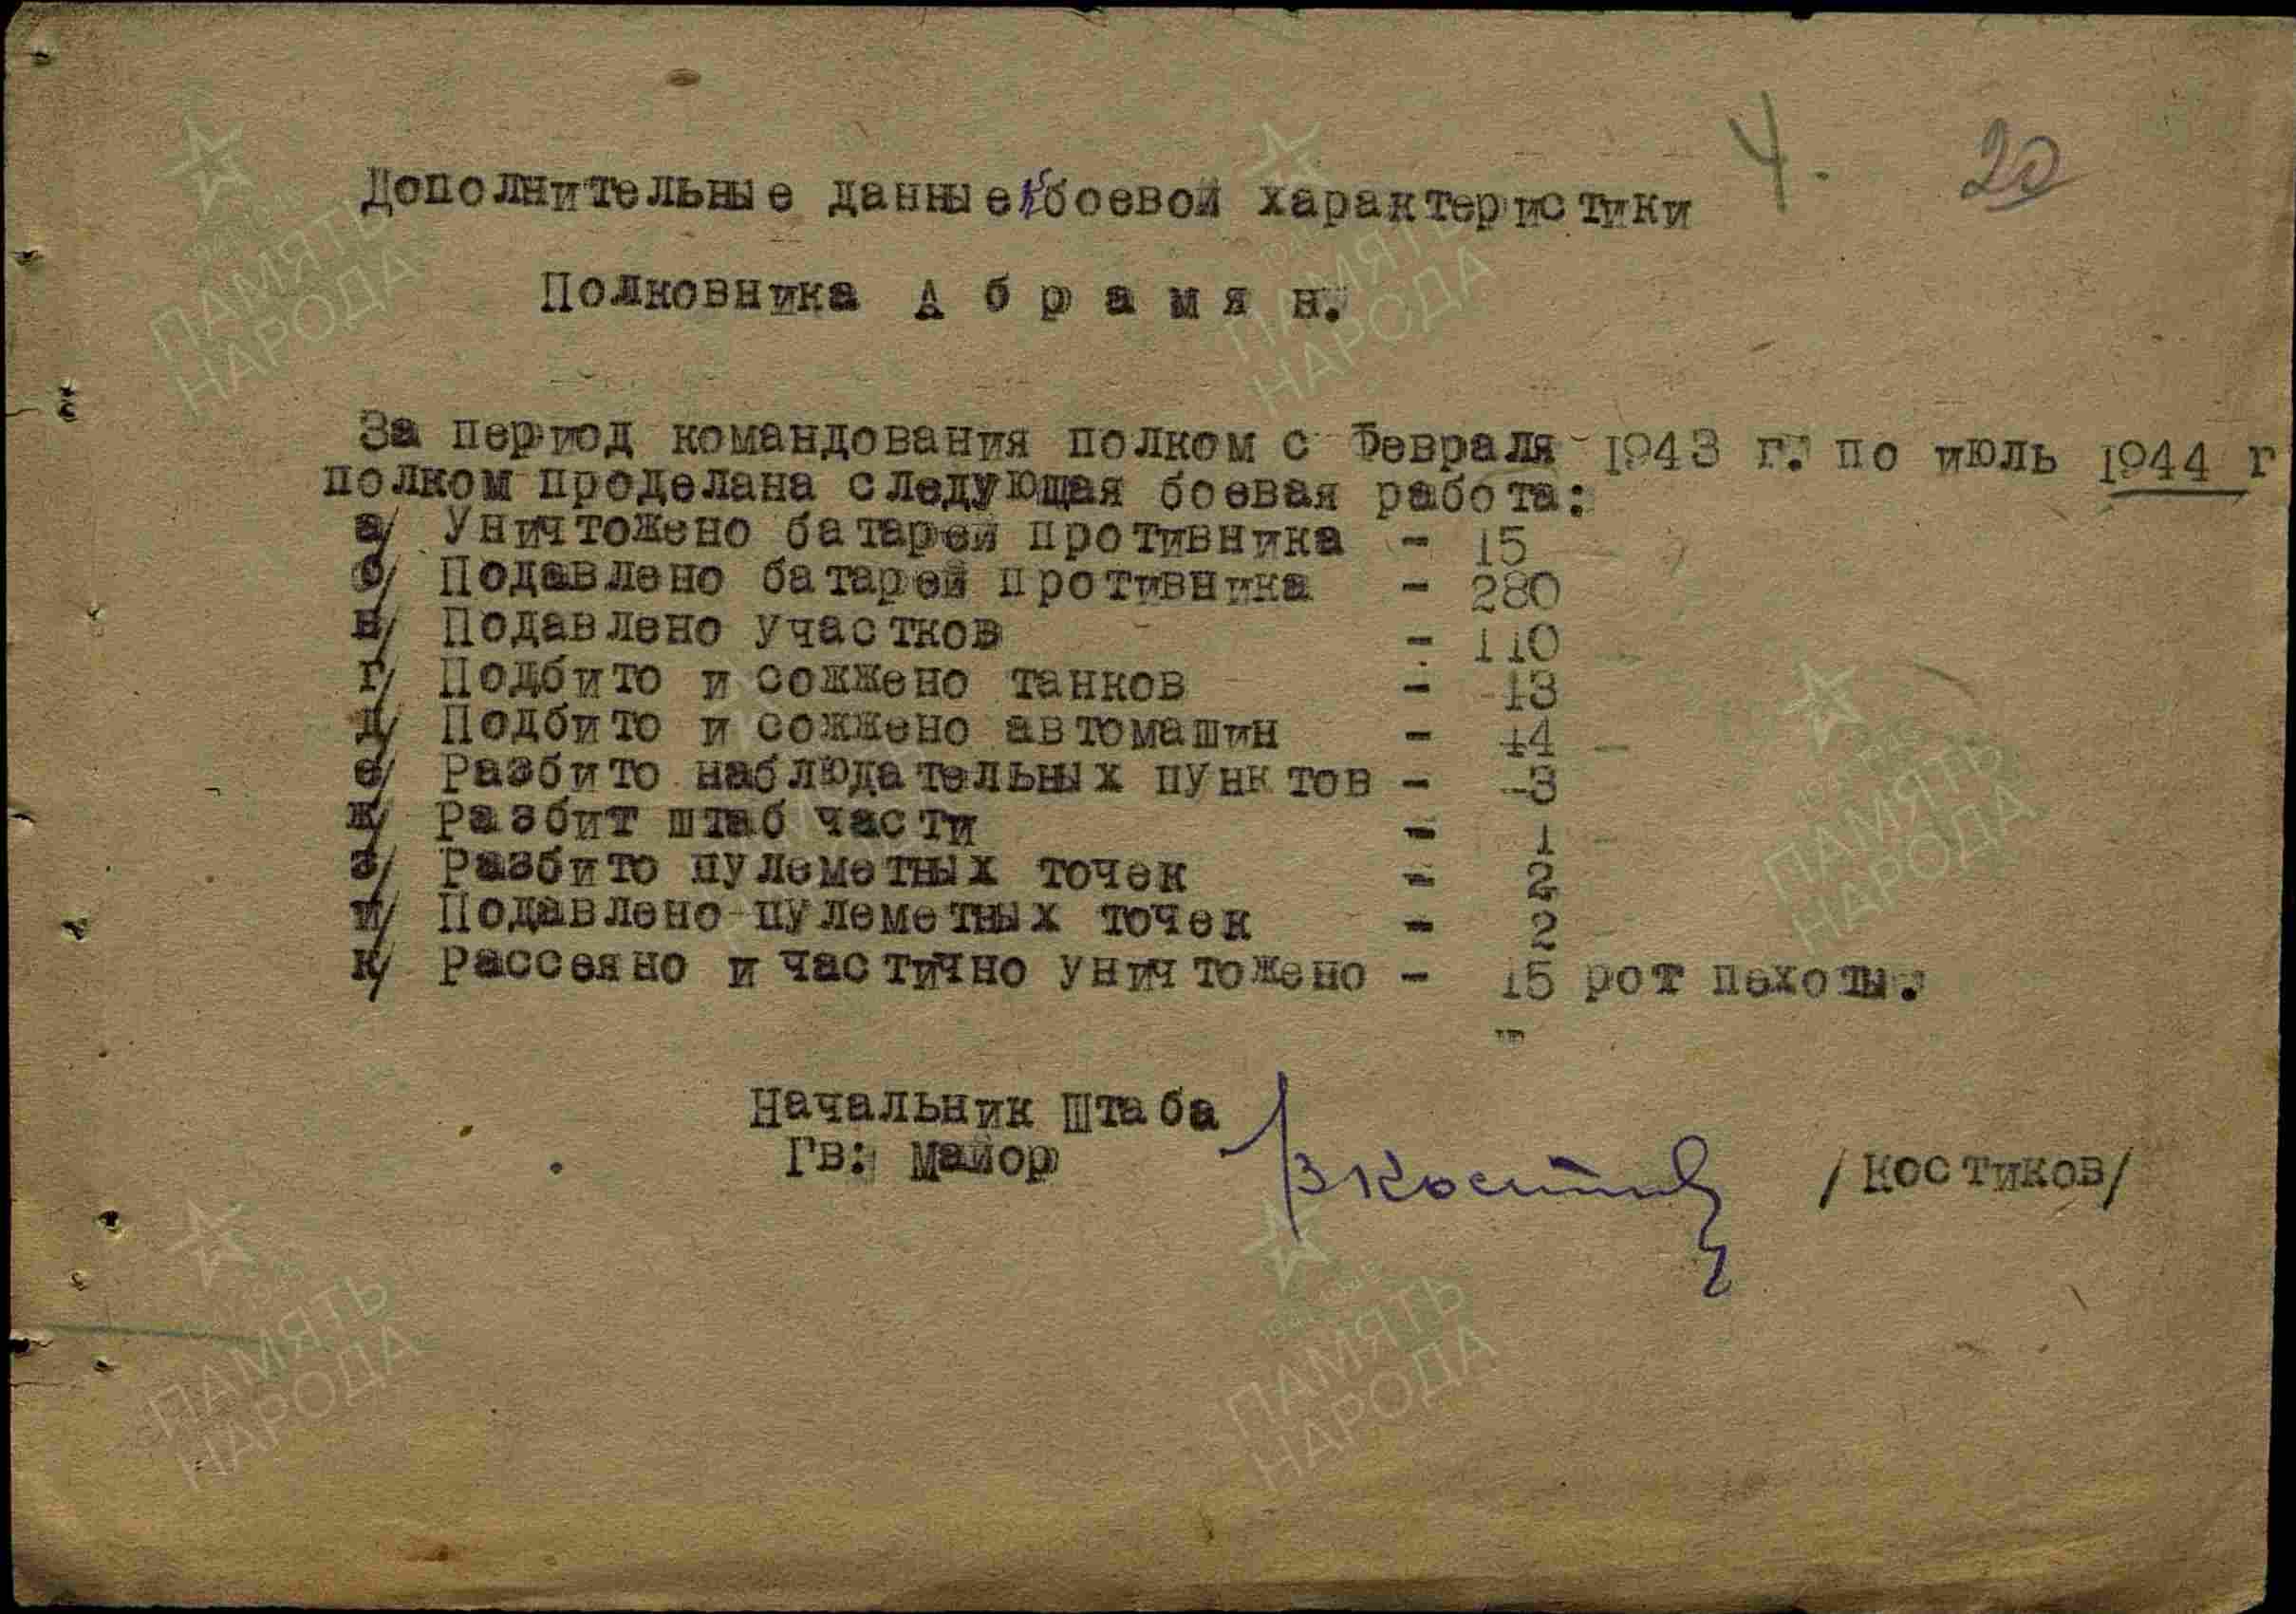 4.
20
Дополнительные данные к боевой характеристики
Полковника А б р а м я н.
За период командования полком с Февраля 1943 г. по июль 1944 г
полком проделана следующая боевая работа:
а/ Уничтожено батарей противника - 15
б/ Подавлено батарей противника - 280
в/ Подавлено участков - 110
г/ Подбито и сожжено танков - 13
д/ Подбито и сожжено автомашин - 14
е/ Разбито наблюдательных пунктов - 3
ж/ Разбит штаб части - 1
з/ Разбито пулеметных точек - 2
и/ Подавлено пулеметных точек - 2
к/ Рассеяно и частично уничтожено - 15 рот пехоты.
Начальник Штаба
Гв: майор /Костиков/
ПАМЯТЬ
НАРОДА
ПАМЯТЬ
НАРОДА
ПАМЯТЬ
НАРОДА
ПАМЯТЬ
НАРОДА
ПАМЯТЬ
НАРОДА